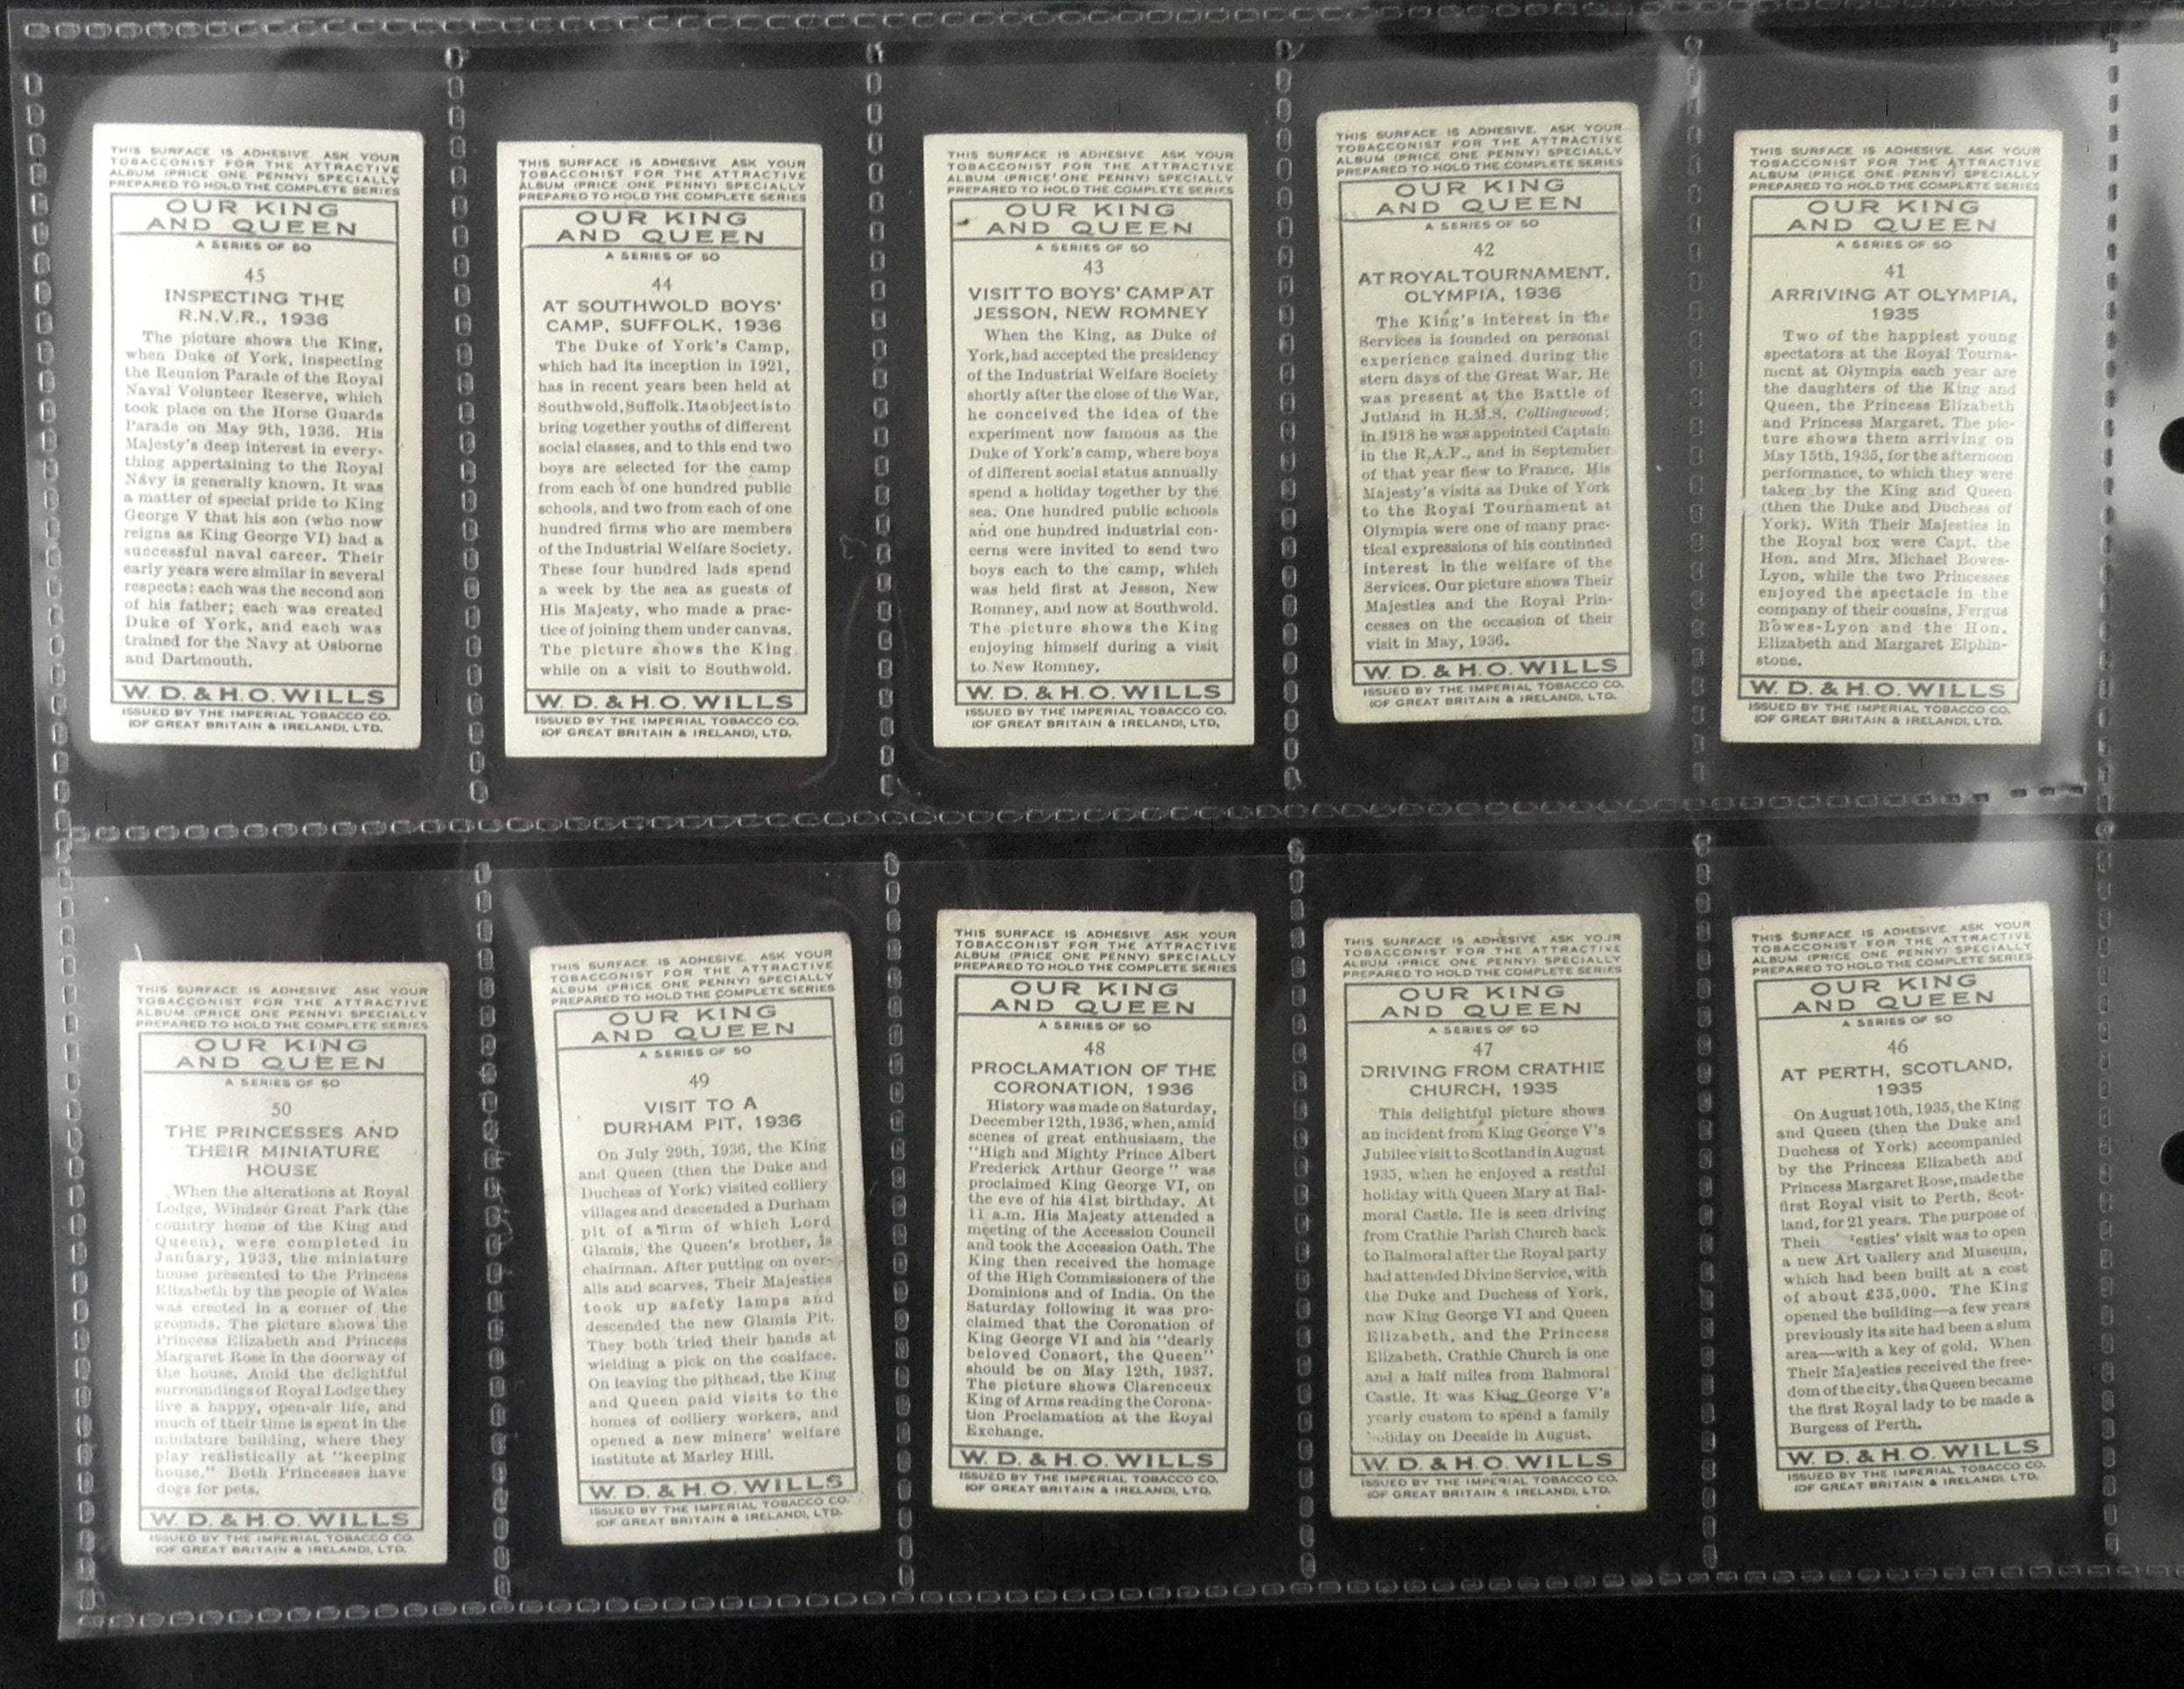 THIS SURFACE IS ADHESIVE. ASK YOUR
TOBACCONIST FOR THE ATTRACTIVE
ALBUM (PRICE ONE PENNY) SPECIALLY
PREPARED TO HOLD THE COMPLETE SERIES
OUR KING
AND QUEEN
A SERIES OF 50
45
INSPECTING THE
R.N.V.R., 1936
The picture shows the King,
when Duke of York, inspecting
the Reunion Parade of the Royal
Naval Volunteer Reserve, which
took place on the Horse Guards
Parade on May 9th, 1936. His
Majesty's deep interest in every-
thing appertaining to the Royal
Navy is generally known. It was
a matter of special pride to King
George V that his son (who now
reigns as King George VI) had a
successful naval career. Their
early years were similar in several
respects: each was the second son
of his father; each was created
Duke of York, and each was
trained for the Navy at Osborne
and Dartmouth.
W. D. & H. O. WILLS
ISSUED BY THE IMPERIAL TOBACCO CO.
(OF GREAT BRITAIN & IRELAND), LTD.
THIS SURFACE IS ADHESIVE ASK YOUR
TOBACCONIST FOR THE ATTRACTIVE
ALBUM (PRICE ONE PENNY) SPECIALLY
PREPARED TO HOLD THE COMPLETE SERIES
OUR KING
AND QUEEN
A SERIES OF 50
44
AT SOUTHWOLD BOYS'
CAMP, SUFFOLK, 1936
The Duke of York's Camp,
which had its inception in 1921,
has in recent years been held at
Southwold, Suffolk. Its object is to
bring together youths of different
social classes, and to this end two
boys are selected for the camp
from each of one hundred public
schools, and two from each of one
hundred firms who are members
of the Industrial Welfare Society.
These four hundred lads spend
a week by the sea as guests of
His Majesty, who made a prac-
tice of joining them under canvas.
The picture shows the King
while on a visit to Southwold.
W. D. & H. O. WILLS
ISSUED BY THE IMPERIAL TOBACCO CO.
(OF GREAT BRITAIN & IRELAND), LTD.
THIS SURFACE IS ADHESIVE ASK YOUR
TOBACCONIST FOR THE ATTRACTIVE
ALBUM (PRICE ONE PENNY) SPECIALLY
PREPARED TO HOLD THE COMPLETE SERIES
OUR KING
AND QUEEN
A SERIES OF 50
43
VISIT TO BOYS' CAMP AT
JESSON, NEW ROMNEY
When the King, as Duke of
York, had accepted the presidency
of the Industrial Welfare Society
shortly after the close of the War,
he conceived the idea of the
experiment now famous as the
Duke of York's camp, where boys
of different social status annually
spend a holiday together by the
sea. One hundred public schools
and one hundred industrial con-
cerns were invited to send two
boys each to the camp, which
was held first at Jesson, New
Romney, and now at Southwold.
The picture shows the King
enjoying himself during a visit
to New Romney.
W. D. & H. O. WILLS
ISSUED BY THE IMPERIAL TOBACCO CO.
(OF GREAT BRITAIN & IRELAND), LTD.
THIS SURFACE IS ADHESIVE. ASK YOUR
TOBACCONIST FOR THE ATTRACTIVE
ALBUM (PRICE ONE PENNY) SPECIALLY
PREPARED TO HOLD THE COMPLETE SERIES
OUR KING
AND QUEEN
A SERIES OF 50
42
AT ROYAL TOURNAMENT,
OLYMPIA, 1936
The King's interest in the
Services is founded on personal
experience gained during the
stern days of the Great War. He
was present at the Battle of
Jutland in H.M.S. Collingwood;
in 1918 he was appointed Captain
in the R.A.F., and in September
of that year flew to France. His
Majesty's visits as Duke of York
to the Royal Tournament at
Olympia were one of many prac-
tical expressions of his continued
interest in the welfare of the
Services. Our picture shows Their
Majesties and the Royal Prin-
cesses on the occasion of their
visit in May, 1936.
W. D. & H. O. WILLS
ISSUED BY THE IMPERIAL TOBACCO CO.
(OF GREAT BRITAIN & IRELAND), LTD.
THIS SURFACE IS ADHESIVE. ASK YOUR
TOBACCONIST FOR THE ATTRACTIVE
ALBUM (PRICE ONE PENNY) SPECIALLY
PREPARED TO HOLD THE COMPLETE SERIES
OUR KING
AND QUEEN
A SERIES OF 50
41
ARRIVING AT OLYMPIA,
1935
Two of the happiest young
spectators at the Royal Tourna-
ment at Olympia each year are
the daughters of the King and
Queen, the Princess Elizabeth
and Princess Margaret. The pic-
ture shows them arriving on
May 15th, 1935, for the afternoon
performance, to which they were
taken by the King and Queen
(then the Duke and Duchess of
York). With Their Majesties in
the Royal box were Capt. the
Hon. and Mrs. Michael Bowes-
Lyon, while the two Princesses
enjoyed the spectacle in the
company of their cousins, Fergus
Bowes-Lyon and the Hon.
Elizabeth and Margaret Elphin-
stone.
W. D. & H. O. WILLS
ISSUED BY THE IMPERIAL TOBACCO CO.
(OF GREAT BRITAIN & IRELAND), LTD.
THIS SURFACE IS ADHESIVE ASK YOUR
TOBACCONIST FOR THE ATTRACTIVE
ALBUM (PRICE ONE PENNY) SPECIALLY
PREPARED TO HOLD THE COMPLETE SERIES
OUR KING
AND QUEEN
A SERIES OF 50
50
THE PRINCESSES AND
THEIR MINIATURE
HOUSE
When the alterations at Royal
Lodge, Windsor Great Park (the
country home of the King and
Queen), were completed in
January, 1933, the miniature
house presented to the Princess
Elizabeth by the people of Wales
was erected in a corner of the
grounds. The picture shows the
Princess Elizabeth and Princess
Margaret Rose in the doorway of
the house. Amid the delightful
surroundings of Royal Lodge they
live a happy, open-air life, and
much of their time is spent in the
miniature building, where they
play realistically at "keeping
house." Both Princesses have
dogs for pets.
W. D. & H. O. WILLS
ISSUED BY THE IMPERIAL TOBACCO CO.
(OF GREAT BRITAIN & IRELAND), LTD.
THIS SURFACE IS ADHESIVE. ASK YOUR
TOBACCONIST FOR THE ATTRACTIVE
ALBUM (PRICE ONE PENNY) SPECIALLY
PREPARED TO HOLD THE COMPLETE SERIES
OUR KING
AND QUEEN
A SERIES OF 50
49
VISIT TO A
DURHAM PIT, 1936
On July 29th, 1936, the King
and Queen (then the Duke and
Duchess of York) visited colliery
villages and descended a Durham
pit of a firm of which Lord
Glamis, the Queen's brother, is
chairman. After putting on over-
alls and scarves, Their Majesties
took up safety lamps and
descended the new Glamis Pit.
They both tried their hands at
wielding a pick on the coalface.
On leaving the pithead, the King
and Queen paid visits to the
homes of colliery workers, and
opened a new miners' welfare
institute at Marley Hill.
W. D. & H. O. WILLS
ISSUED BY THE IMPERIAL TOBACCO CO.
(OF GREAT BRITAIN & IRELAND), LTD.
THIS SURFACE IS ADHESIVE ASK YOUR
TOBACCONIST FOR THE ATTRACTIVE
ALBUM (PRICE ONE PENNY) SPECIALLY
PREPARED TO HOLD THE COMPLETE SERIES
OUR KING
AND QUEEN
A SERIES OF 50
48
PROCLAMATION OF THE
CORONATION, 1936
History was made on Saturday,
December 12th, 1936, when, amid
scenes of great enthusiasm, the
"High and Mighty Prince Albert
Frederick Arthur George" was
proclaimed King George VI, on
the eve of his 41st birthday. At
11 a.m. His Majesty attended a
meeting of the Accession Council
and took the Accession Oath. The
King then received the homage
of the High Commissioners of the
Dominions and of India. On the
Saturday following it was pro-
claimed that the Coronation of
King George VI and his "dearly
beloved Consort, the Queen"
should be on May 12th, 1937.
The picture shows Clarenceux
King of Arms reading the Corona-
tion Proclamation at the Royal
Exchange.
W. D. & H. O. WILLS
ISSUED BY THE IMPERIAL TOBACCO CO.
(OF GREAT BRITAIN & IRELAND), LTD.
THIS SURFACE IS ADHESIVE ASK YOUR
TOBACCONIST FOR THE ATTRACTIVE
ALBUM (PRICE ONE PENNY) SPECIALLY
PREPARED TO HOLD THE COMPLETE SERIES
OUR KING
AND QUEEN
A SERIES OF 50
47
DRIVING FROM CRATHIE
CHURCH, 1935
This delightful picture shows
an incident from King George V's
Jubilee visit to Scotland in August
1935, when he enjoyed a restful
holiday with Queen Mary at Bal-
moral Castle. He is seen driving
from Crathie Parish Church back
to Balmoral after the Royal party
had attended Divine Service, with
the Duke and Duchess of York,
now King George VI and Queen
Elizabeth, and the Princess
Elizabeth. Crathie Church is one
and a half miles from Balmoral
Castle. It was King George V's
yearly custom to spend a family
holiday on Deeside in August.
W. D. & H. O. WILLS
ISSUED BY THE IMPERIAL TOBACCO CO.
(OF GREAT BRITAIN & IRELAND), LTD.
THIS SURFACE IS ADHESIVE ASK YOUR
TOBACCONIST FOR THE ATTRACTIVE
ALBUM (PRICE ONE PENNY) SPECIALLY
PREPARED TO HOLD THE COMPLETE SERIES
OUR KING
AND QUEEN
A SERIES OF 50
46
AT PERTH, SCOTLAND,
1935
On August 10th, 1935, the King
and Queen (then the Duke and
Duchess of York) accompanied
by the Princess Elizabeth and
Princess Margaret Rose, made the
first Royal visit to Perth, Scot-
land, for 21 years. The purpose of
Their esties' visit was to open
a new Art Gallery and Museum,
which had been built at a cost
of about £35,000. The King
opened the building—a few years
previously its site had been a slum
area—with a key of gold. When
Their Majesties received the free-
dom of the city, the Queen became
the first Royal lady to be made a
Burgess of Perth.
W. D. & H. O. WILLS
ISSUED BY THE IMPERIAL TOBACCO CO.
(OF GREAT BRITAIN & IRELAND), LTD.